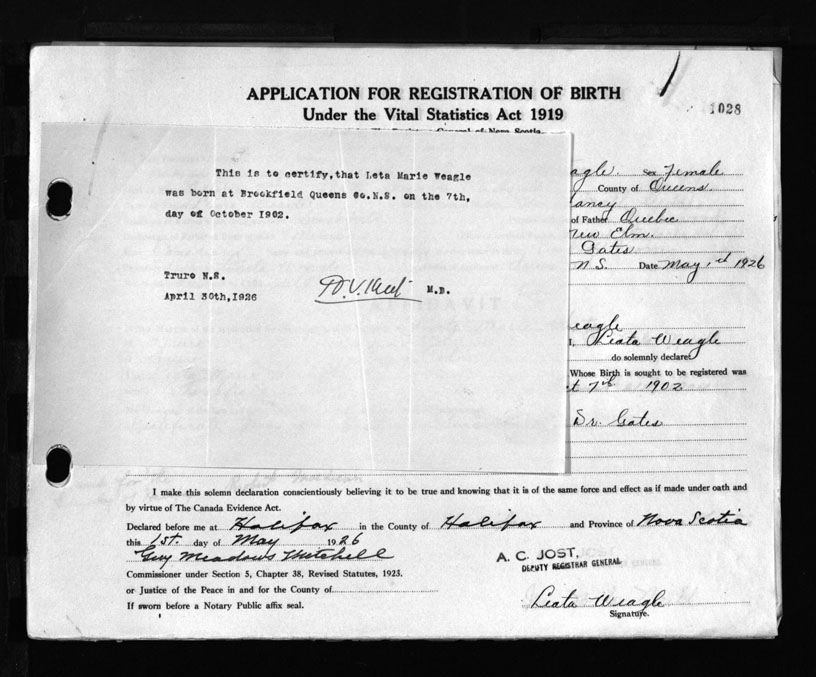 APPLICATION FOR REGISTRATION OF BIRTH
Under the Vital Statistics Act 1919
1028
This is to certify, that Leta Marie Weagle
was born at Brookfield Queens Co.N.S. on the 7th,
day of October 1902.
Truro N.S.
April 30th,1926
M.D.
eagle Sex Female
County of Queens
ancy
of Father Quebec
New Elm.
Gates
N.S. Date May 1st 1926
AFFIDAVIT
eagle
I, Leata Weagle
do solemnly declare
Whose Birth is sought to be registered was
t 7th 1902
Dr. Gates
I make this solemn declaration conscientiously believing it to be true and knowing that it is of the same force and effect as if made under oath and
by virtue of The Canada Evidence Act.
Declared before me at Halifax in the County of Halifax and Province of Nova Scotia
this 1st. day of May 1926
Guy Meadows Mitchell
A. C. JOST,
DEPUTY REGISTRAR GENERAL
Commissioner under Section 5, Chapter 38, Revised Statutes, 1923.
or Justice of the Peace in and for the County of
If sworn before a Notary Public affix seal.
Leata Weagle
Signature.